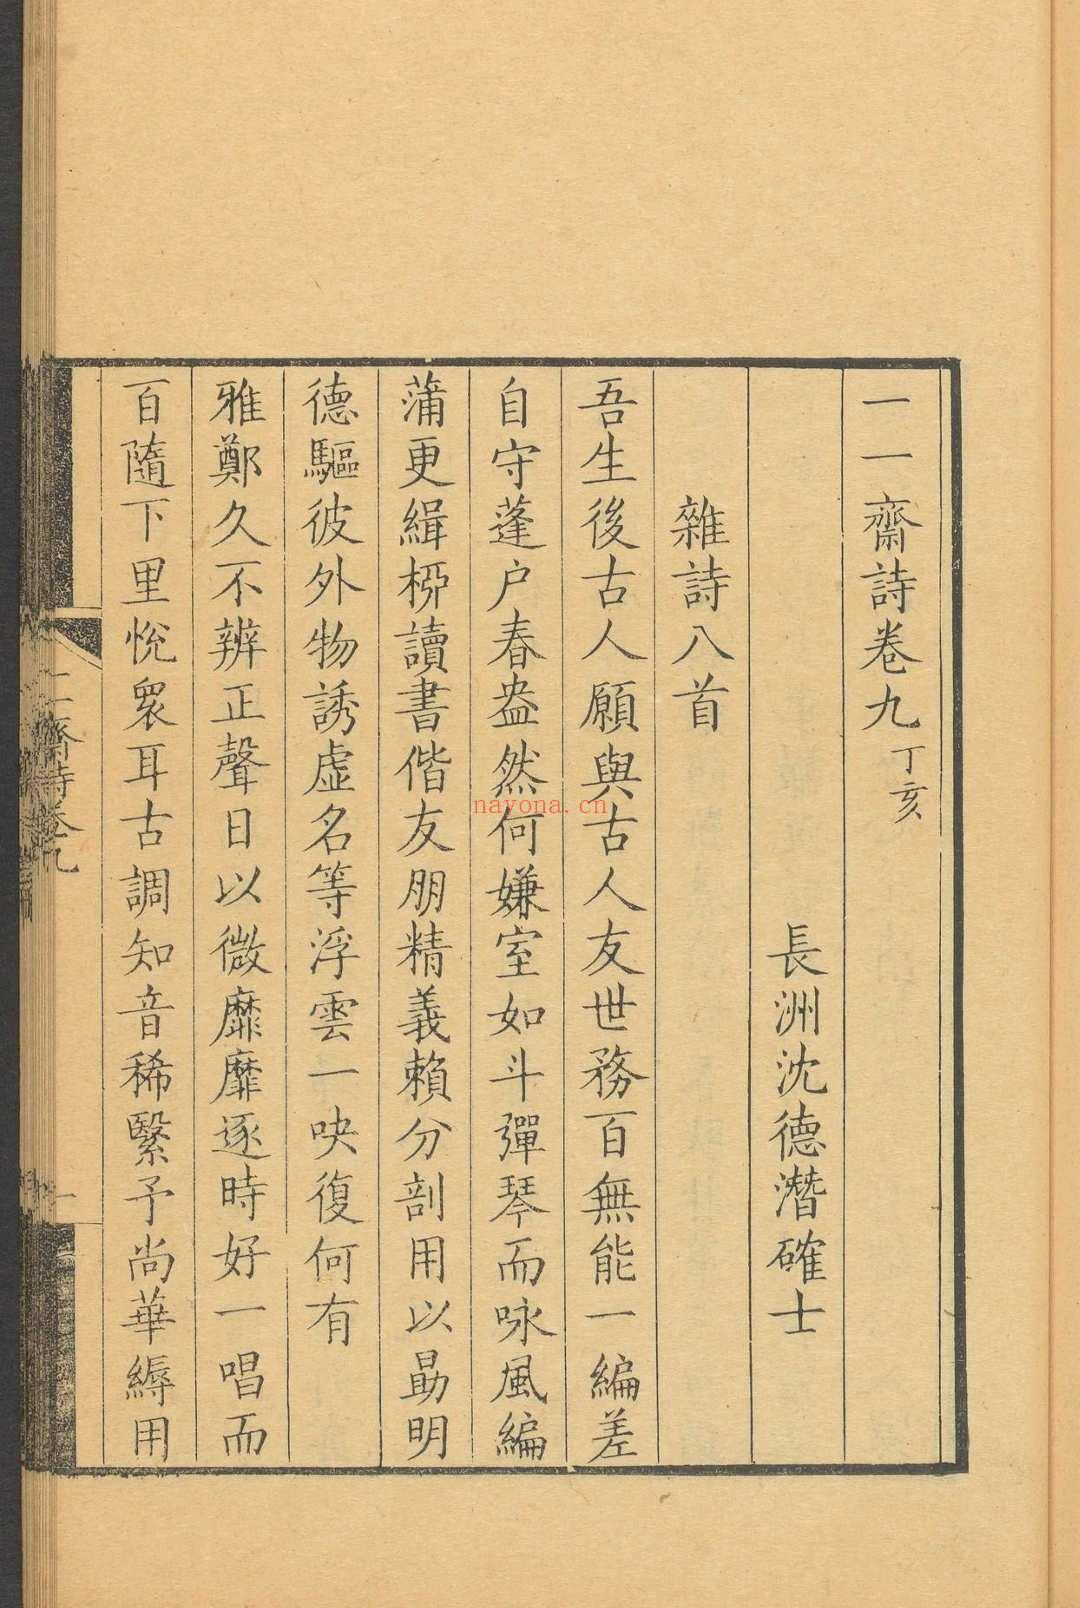 一一齋詩卷九丁亥
長洲沈德潛確士
雜詩八首
吾生後古人願與古人友世務百無能一編差
自守蓬户春盎然何嫌室如斗彈琴而咏風編
蒲更緝栁讀書偕友朋精義賴分剖用以勗明
德驅彼外物誘虛名等浮雲一吷復何有
雅鄭久不辨正聲日以微靡靡逐時好一唱而
百隨下里悅衆耳古調知音稀繄予尚華縟用
一一齋詩卷九
一
nayona.cn